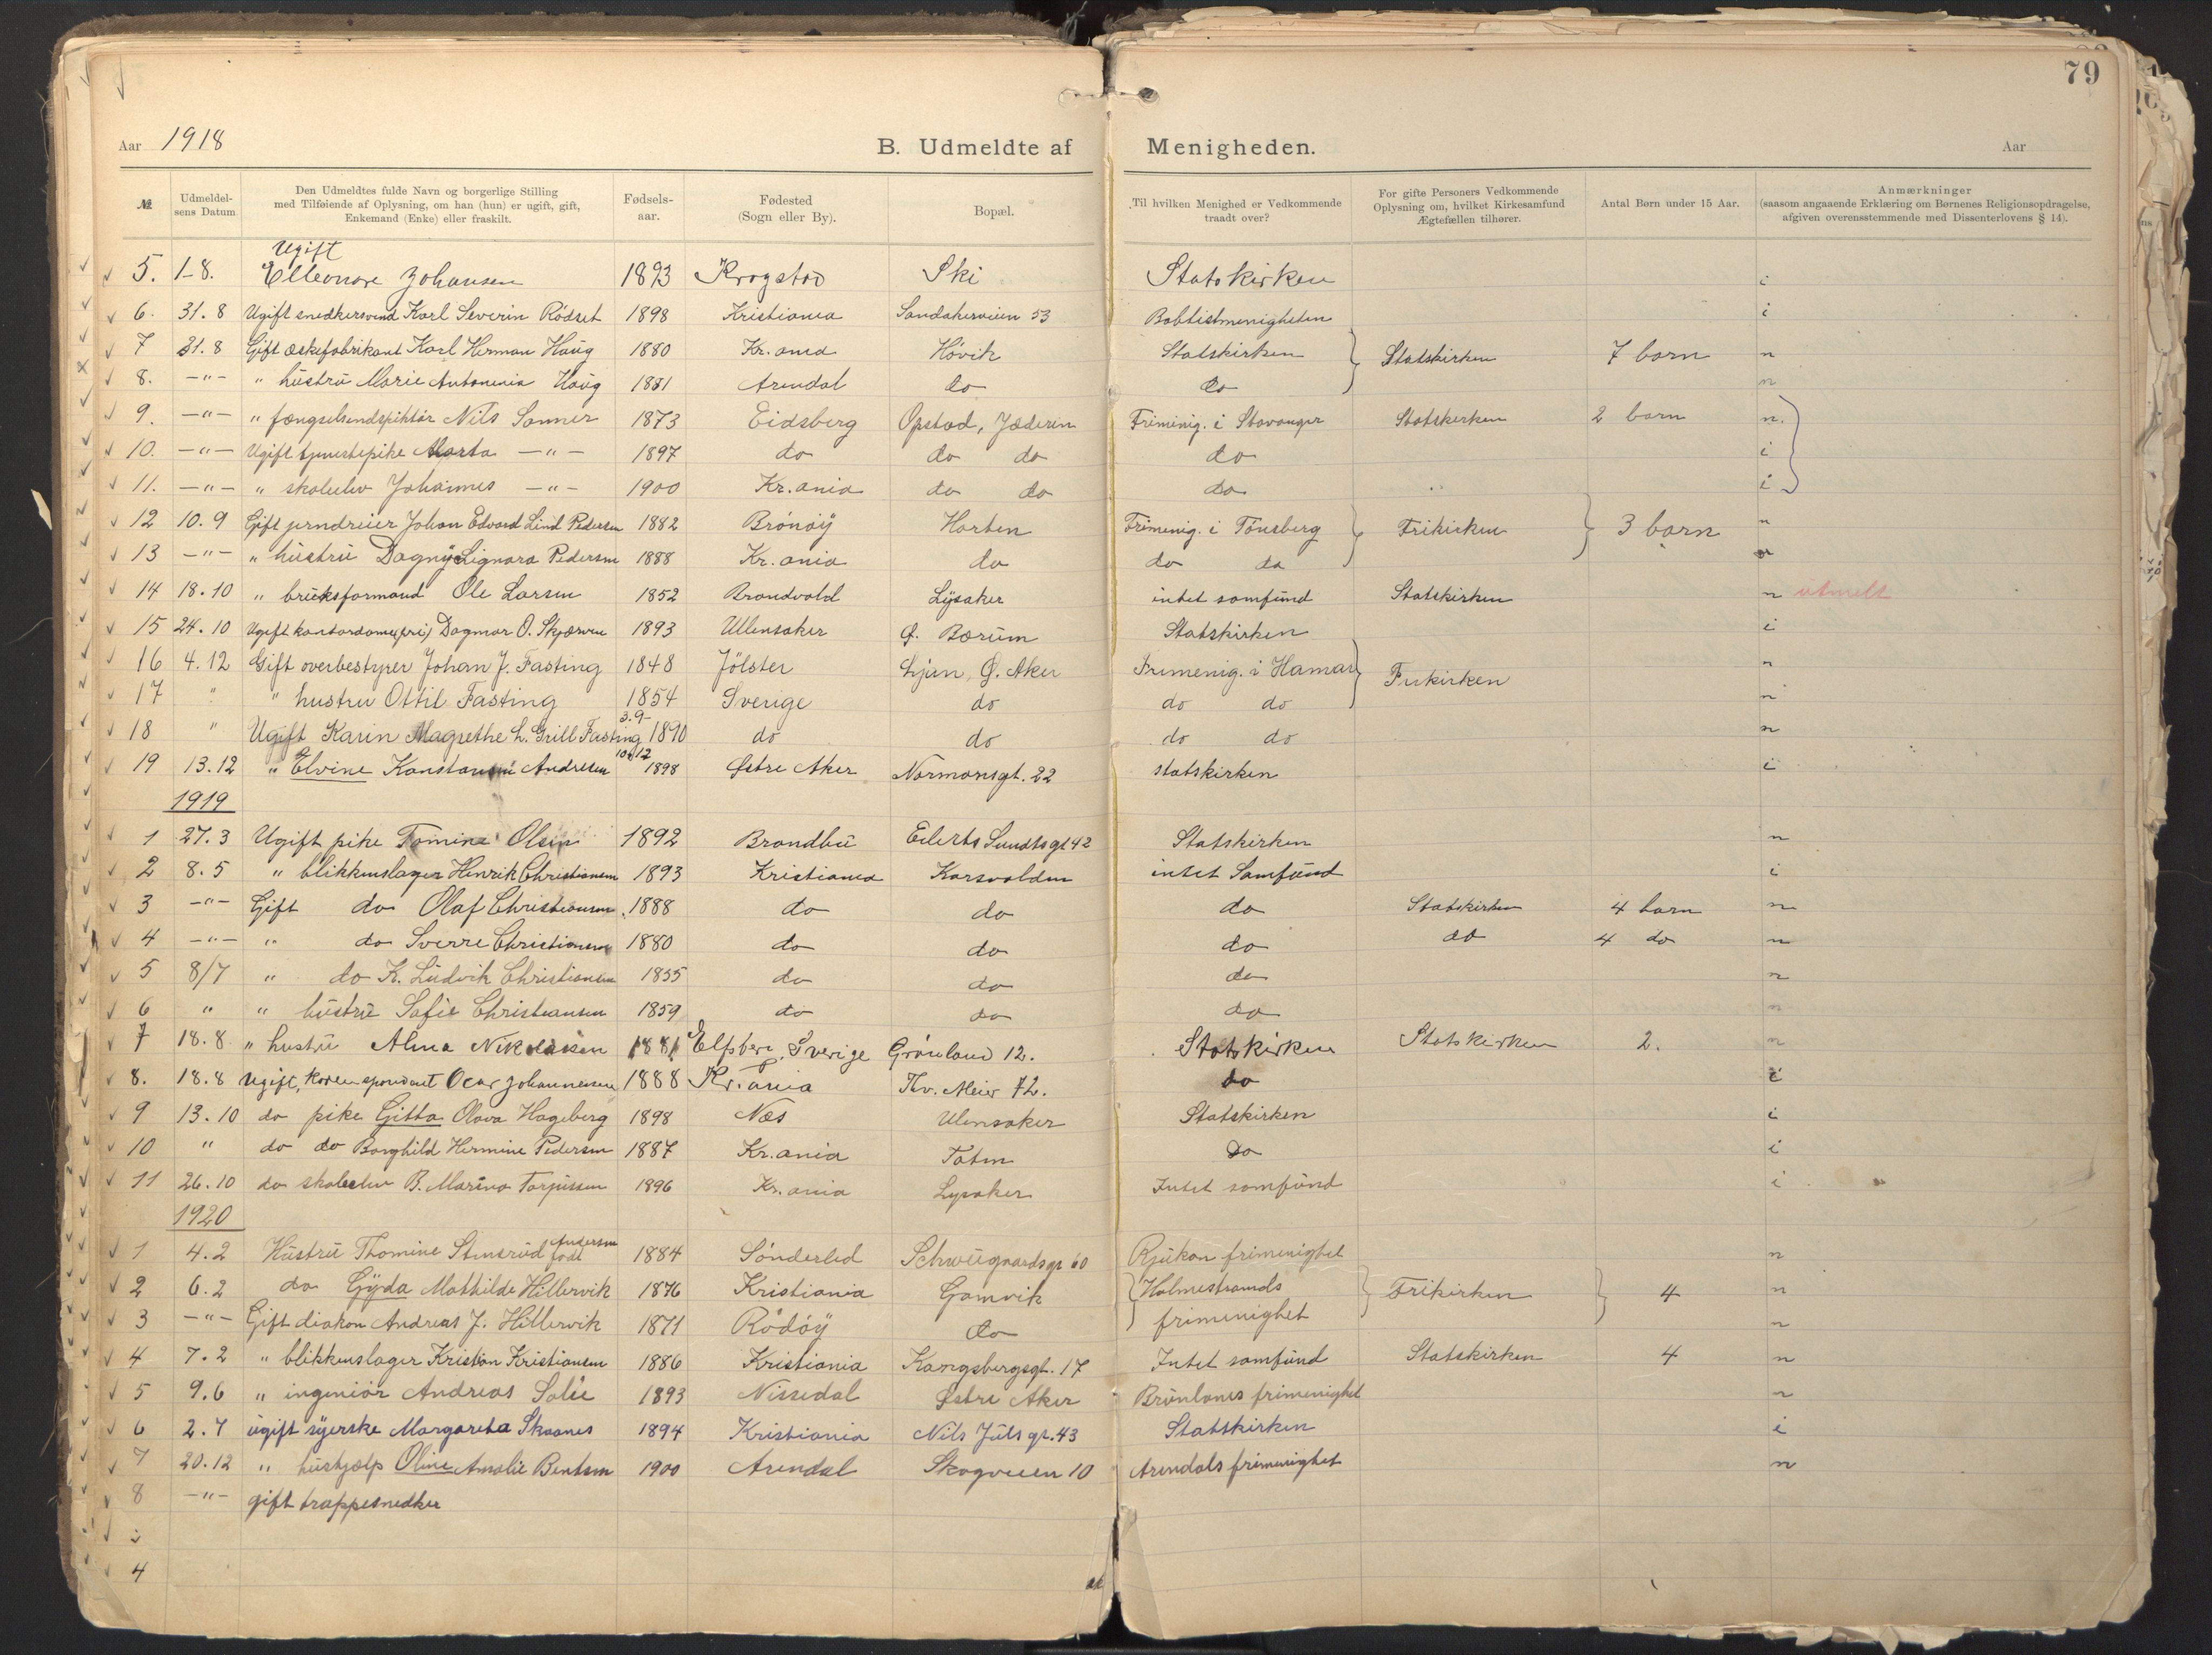 79
Aar 1918 B. Udmeldte af Menigheden. Aar
№ Udmeldelsens Datum Den Udmeldtes fulde Navn og borgerlige Stilling med Tilføiende af Oplysning, om han (hun) er ugift, gift, Enkemand (Enke) eller fraskilt. Fødselsaar. Fødested (Sogn eller By). Bopæl. Til hvilken Menighed er Vedkommende traadt over? For gifte Personers Vedkommende Oplysning om, hvilket Kirkesamfund Ægtefællen tilhører. Antal Børn under 15 Aar. Anmærkninger (saasom angaaende Erklæring om Børnenes Religionsopdragelse, afgiven overensstemmende med Dissenterlovens § 14).
Ugift
5. 1-8. Elleonore Johansen 1893 Krogstad Ski Statskirken i
6. 31.8 Ugift snedkersvend Karl Severin Rödset 1898 Kristiania Sandakerveien 53 Babtistmenigheten i
7 31.8 Gift æskefabrikant Karl Herman Haug 1880 Kr.ania Hövik Statskirken Statskirken 7 barn n
8. -"- " hustru Marie Antonenia Haug 1881 Arendal do do n
9. -"- " fængselsendspiktör Nils Sanner 1873 Eidsberg Opstad, Jæderen Frimenig. i Stavanger Statskirken 2 barn n.
10. -"- Ugift tjenestepike Marta -"- 1897 do do do do i
11. -"- " skoleelev Johannes -"- 1900 Kr.ania do do do i
12 10.9 Gift jerndreier Johan Edvard Lind Pedersen 1882 Brönöy Horten Frimenig. i Tönsberg Frikirken 3 barn n
13 -"- " hustru Dagny Signora Pedersen 1888 Kr.ania do do do n
14 18.10 " bruksformand Ole Larsen 1852 Brandvold Lysaker intet samfund Statskirken n utmelt
15 24.10 Ugift kontordame Dagmar O. Skjærven 1893 Ullensaker Ø. Bærum Statskirken i
16 4.12 Gift overbestyrer Johan J. Fasting 1848 Jölster Ljan, Ø. Aker Frimenig. i Hamar Frikirken n
17 " " hustru Ottil Fasting 1854 Sverige do do do n
18 " Ugift Karin Magrethe L. Grill Fasting 3.9-1890 do do do do n
19 13.12 " Elvine Konstanse Andresen 10/12 1898 Østre Aker Normansgt. 22 statskirken i
1919
1 27.3 Ugift pike Tomine Olsen 1892 Brandbu Eilerts Sundtsgt 42 Statskirken n
2 8.5 " blikkenslager Henrik Christiansen 1893 Kristiania Korsvolden intet Samfund i
3 -"- Gift do Olaf Christiansen 1888 do do do Statskirken 4 barn n
4 -"- " do Sverre Christiansen 1880 do do do do 4 do n
5 8/7 " do K. Ludvik Christiansen 1855 do do do n
6 " " hustru Sofie Christiansen 1859 do do do n
7 18.8. " hustru Alma Nikolaisen 1881 Elfsberg, Sverige Grönland 12. Statskirken Statskirken 2. n
8. 18.8 Ugift, korrespondent Oscar Johannesen 1888 Kr.ania Thv. Meier 72. do i
9 13.10 do pike Gitta Olava Hageberg 1898 Næs Ulensaker Statskirken i
10 " do do Borghild Hermine Pedersen 1887 Kr.ania Toten do i
11 26.10 do skoleelev B. Marino Torjussen 1896 Kr.ania Lysaker Intet samfund i
1920
1 4.2 Hustru Thomine Stensrud född Andersen 1884 Sönderled Schweigaardsgt 60 Rjukan frimenighet n
2 6.2 do Gyda Mathilde Hillervik 1876 Kristiania Gamvik Holmestrands frimenighet Frikirken 4 n
3 -"- Gift diakon Andreas J. Hillervik 1871 Rödöy do n
4 7.2 " blikkenslager Kristian Kristiansen 1886 Kristiania Kongsbergsgt. 17 Intet samfund Statskirken 4 n
5 9.6 " ingeniör Andreas Solli 1893 Nissedal Østre Aker Brunlanes frimenighet n
6 2.7 ugift syerske Margareta Skaanes 1894 Kristiania Nils Juls gt. 43 Statskirken i
7 20.12 " hushjælp Oline Amalie Bentsen 1900 Arendal Skogveien 10 Arendals frimenighet n
8 -"- gift trappesnedker
4